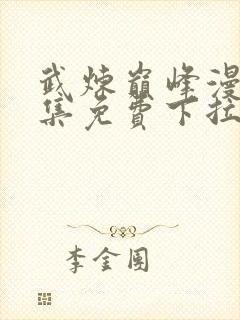 武炼巅峰漫
集免費下拉
李金圉